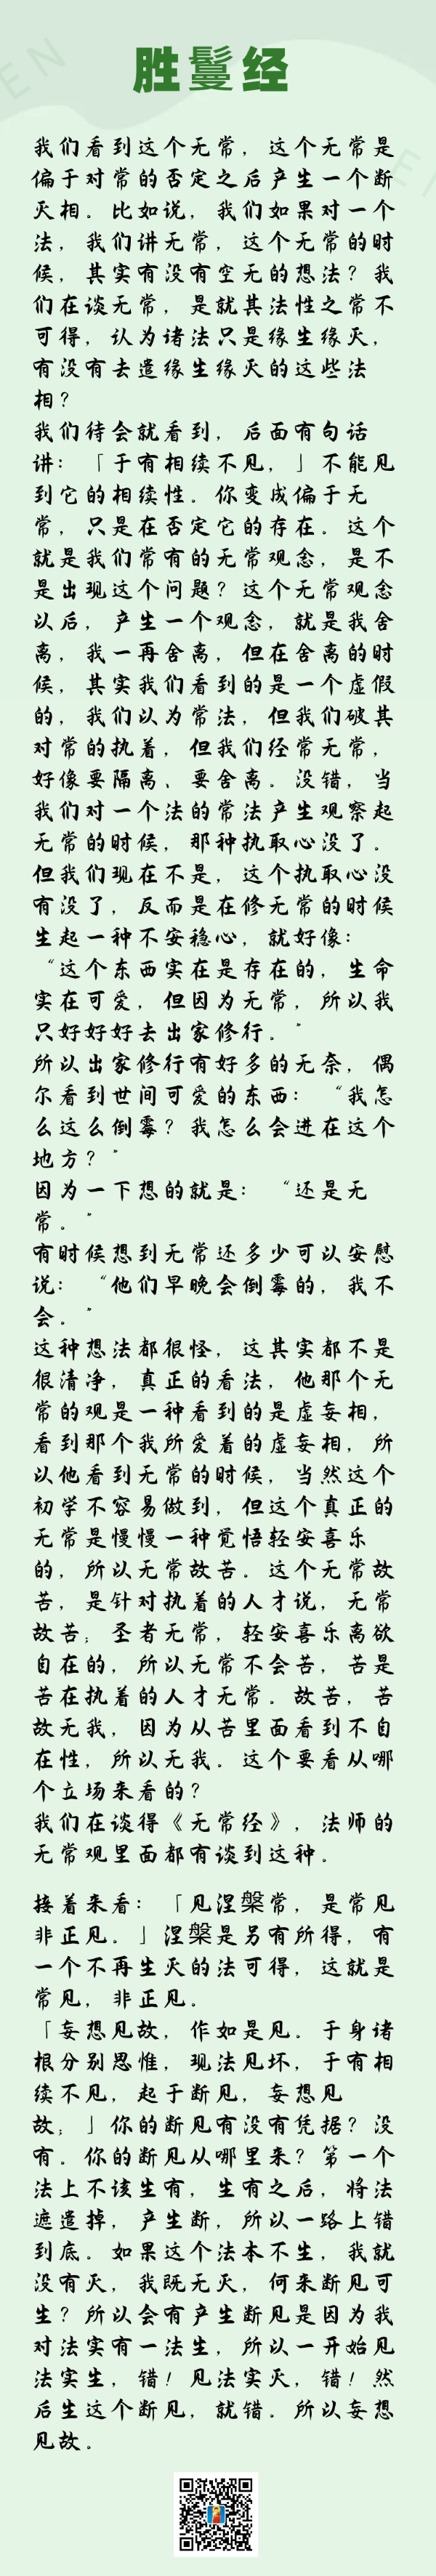 胜鬘经
我们看到这个无常，这个无常是
偏于对常的否定之后产生一个断
灭相。比如说，我们如果对一个
法，我们讲无常，这个无常的时
候，其实有没有空无的想法？我
们在谈无常，是就其法性之常不
可得，认为诸法只是缘生缘灭，
有没有去遣缘生缘灭的这些法
相？
我们待会就看到，后面有句话
讲：「于有相续不见，」不能见
到它的相续性。你变成偏于无
常，只是在否定它的存在。这个
就是我们常有的无常观念，是不
是出现这个问题？这个无常观念
以后，产生一个观念，就是我舍
离，我一再舍离，但在舍离的时
候，其实我们看到的是一个虚假
的，我们以为常法，但我们破其
对常的执着，但我们经常无常，
好像要隔离、要舍离。没错，当
我们对一个法的常法产生观察起
无常的时候，那种执取心没了。
但我们现在不是，这个执取心没
有没了，反而是在修无常的时候
生起一种不安稳心，就好像：
“这个东西实在是存在的，生命
实在可爱，但因为无常，所以我
只好好好去出家修行。”
所以出家修行有好多的无奈，偶
尔看到世间可爱的东西：“我怎
么这么倒霉？我怎么会进在这个
地方？”
因为一下想的就是：“还是无
常。”
有时候想到无常还多少可以安慰
说：“他们早晚会倒霉的，我不
会。”
这种想法都很怪，这其实都不是
很清净，真正的看法，他那个无
常的观是一种看到的是虚妄相，
看到那个我所爱着的虚妄相，所
以他看到无常的时候，当然这个
初学不容易做到，但这个真正的
无常是慢慢一种觉悟轻安喜乐
的，所以无常故苦。这个无常故
苦，是针对执着的人才说，无常
故苦；圣者无常，轻安喜乐离欲
自在的，所以无常不会苦，苦是
苦在执着的人才无常。故苦，苦
故无我，因为从苦里面看到不自
在性，所以无我。这个要看从哪
个立场来看的？
我们在谈得《无常经》，法师的
无常观里面都有谈到这种。
接着来看：「见涅槃常，是常见
非正见。」涅槃是另有所得，有
一个不再生灭的法可得，这就是
常见，非正见。
「妄想见故，作如是见。于身诸
根分别思惟，现法见坏，于有相
续不见，起于断见，妄想见
故；」你的断见有没有凭据？没
有。你的断见从哪里来？第一个
法上不该生有，生有之后，将法
遮遣掉，产生断，所以一路上错
到底。如果这个法本不生，我就
没有灭，我既无灭，何来断见可
生？所以会有产生断见是因为我
对法实有一法生，所以一开始见
法实生，错！见法实灭，错！然
后生这个断见，就错。所以妄想
见故。